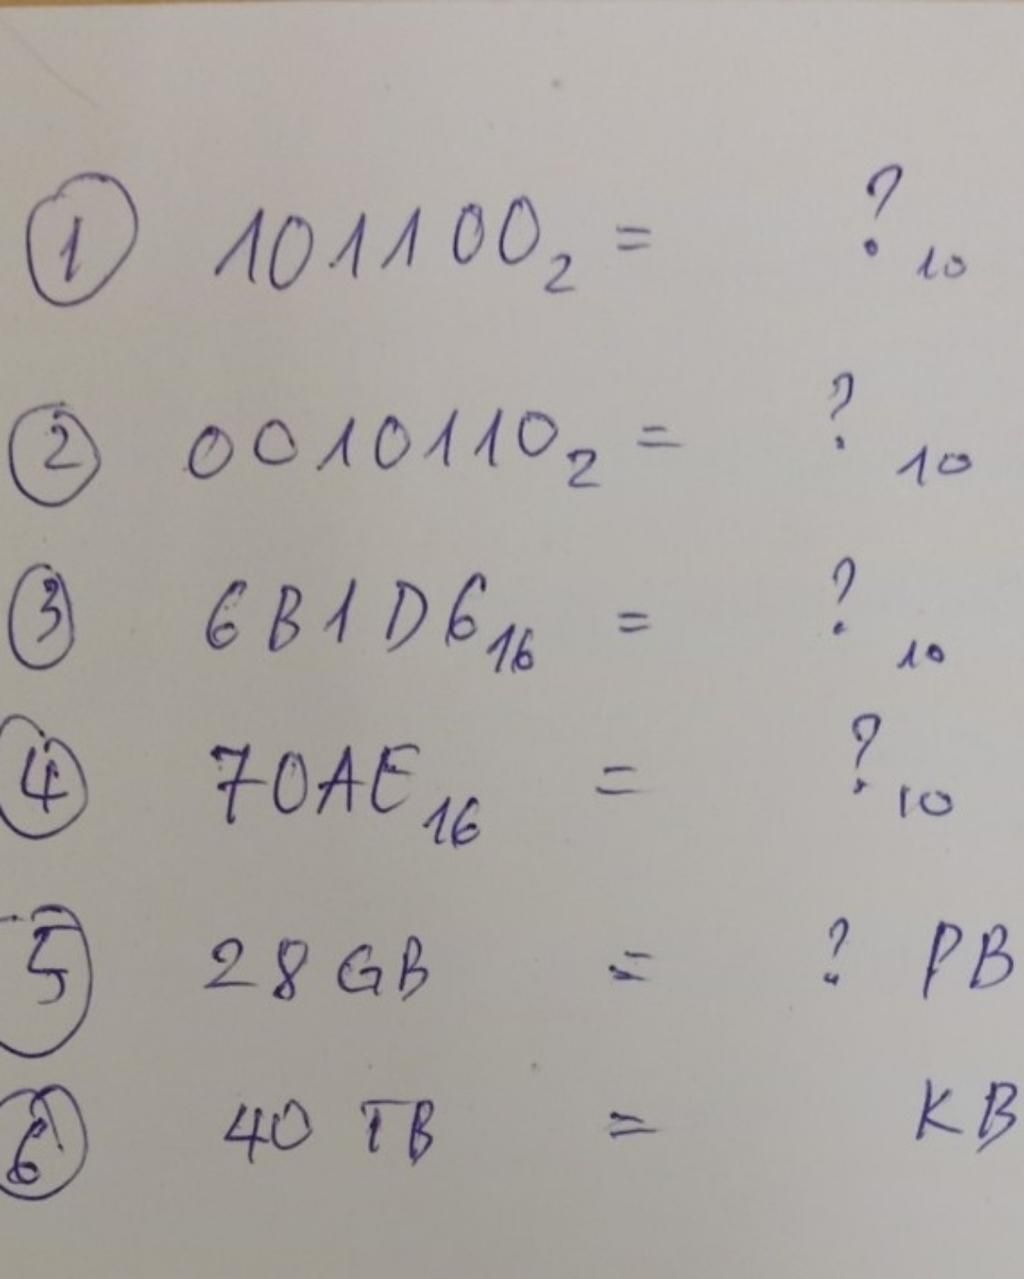 ① 101100₂ = ?₁₀
② 0010110₂ = ?₁₀
③ 6B1D6₁₆ = ?₁₀
④ 70AE₁₆ = ?₁₀
⑤ 28 GB = ? PB
⑥ 40 TB = KB